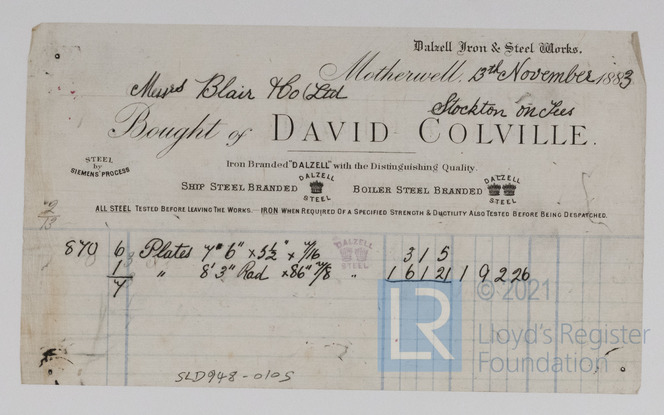 Dalzell Iron & Steel Works.
Motherwell, 13th November 1883
Messrs Blair & Co Ltd
Stockton on Tees
Bought of DAVID COLVILLE.
Iron Branded "DALZELL" with the Distinguishing Quality
STEEL
by
SIEMENS' PROCESS
SHIP STEEL BRANDED DALZELL STEEL BOILER STEEL BRANDED DALZELL STEEL
ALL STEEL TESTED BEFORE LEAVING THE WORKS. IRON WHEN REQUIRED OF A SPECIFIED STRENGTH & DUCTILITY ALSO TESTED BEFORE BEING DESPATCHED.
870 6 Plates 7" 6" × 5½" × 7/16 DALZELL STEEL 3 1 5
1 " 8' 3" Rad × 86" 7/8 " 1 6 1 21 1 9 2 26
7
SLD948-0105
LR
© 2021
Lloyd's Register
Foundation